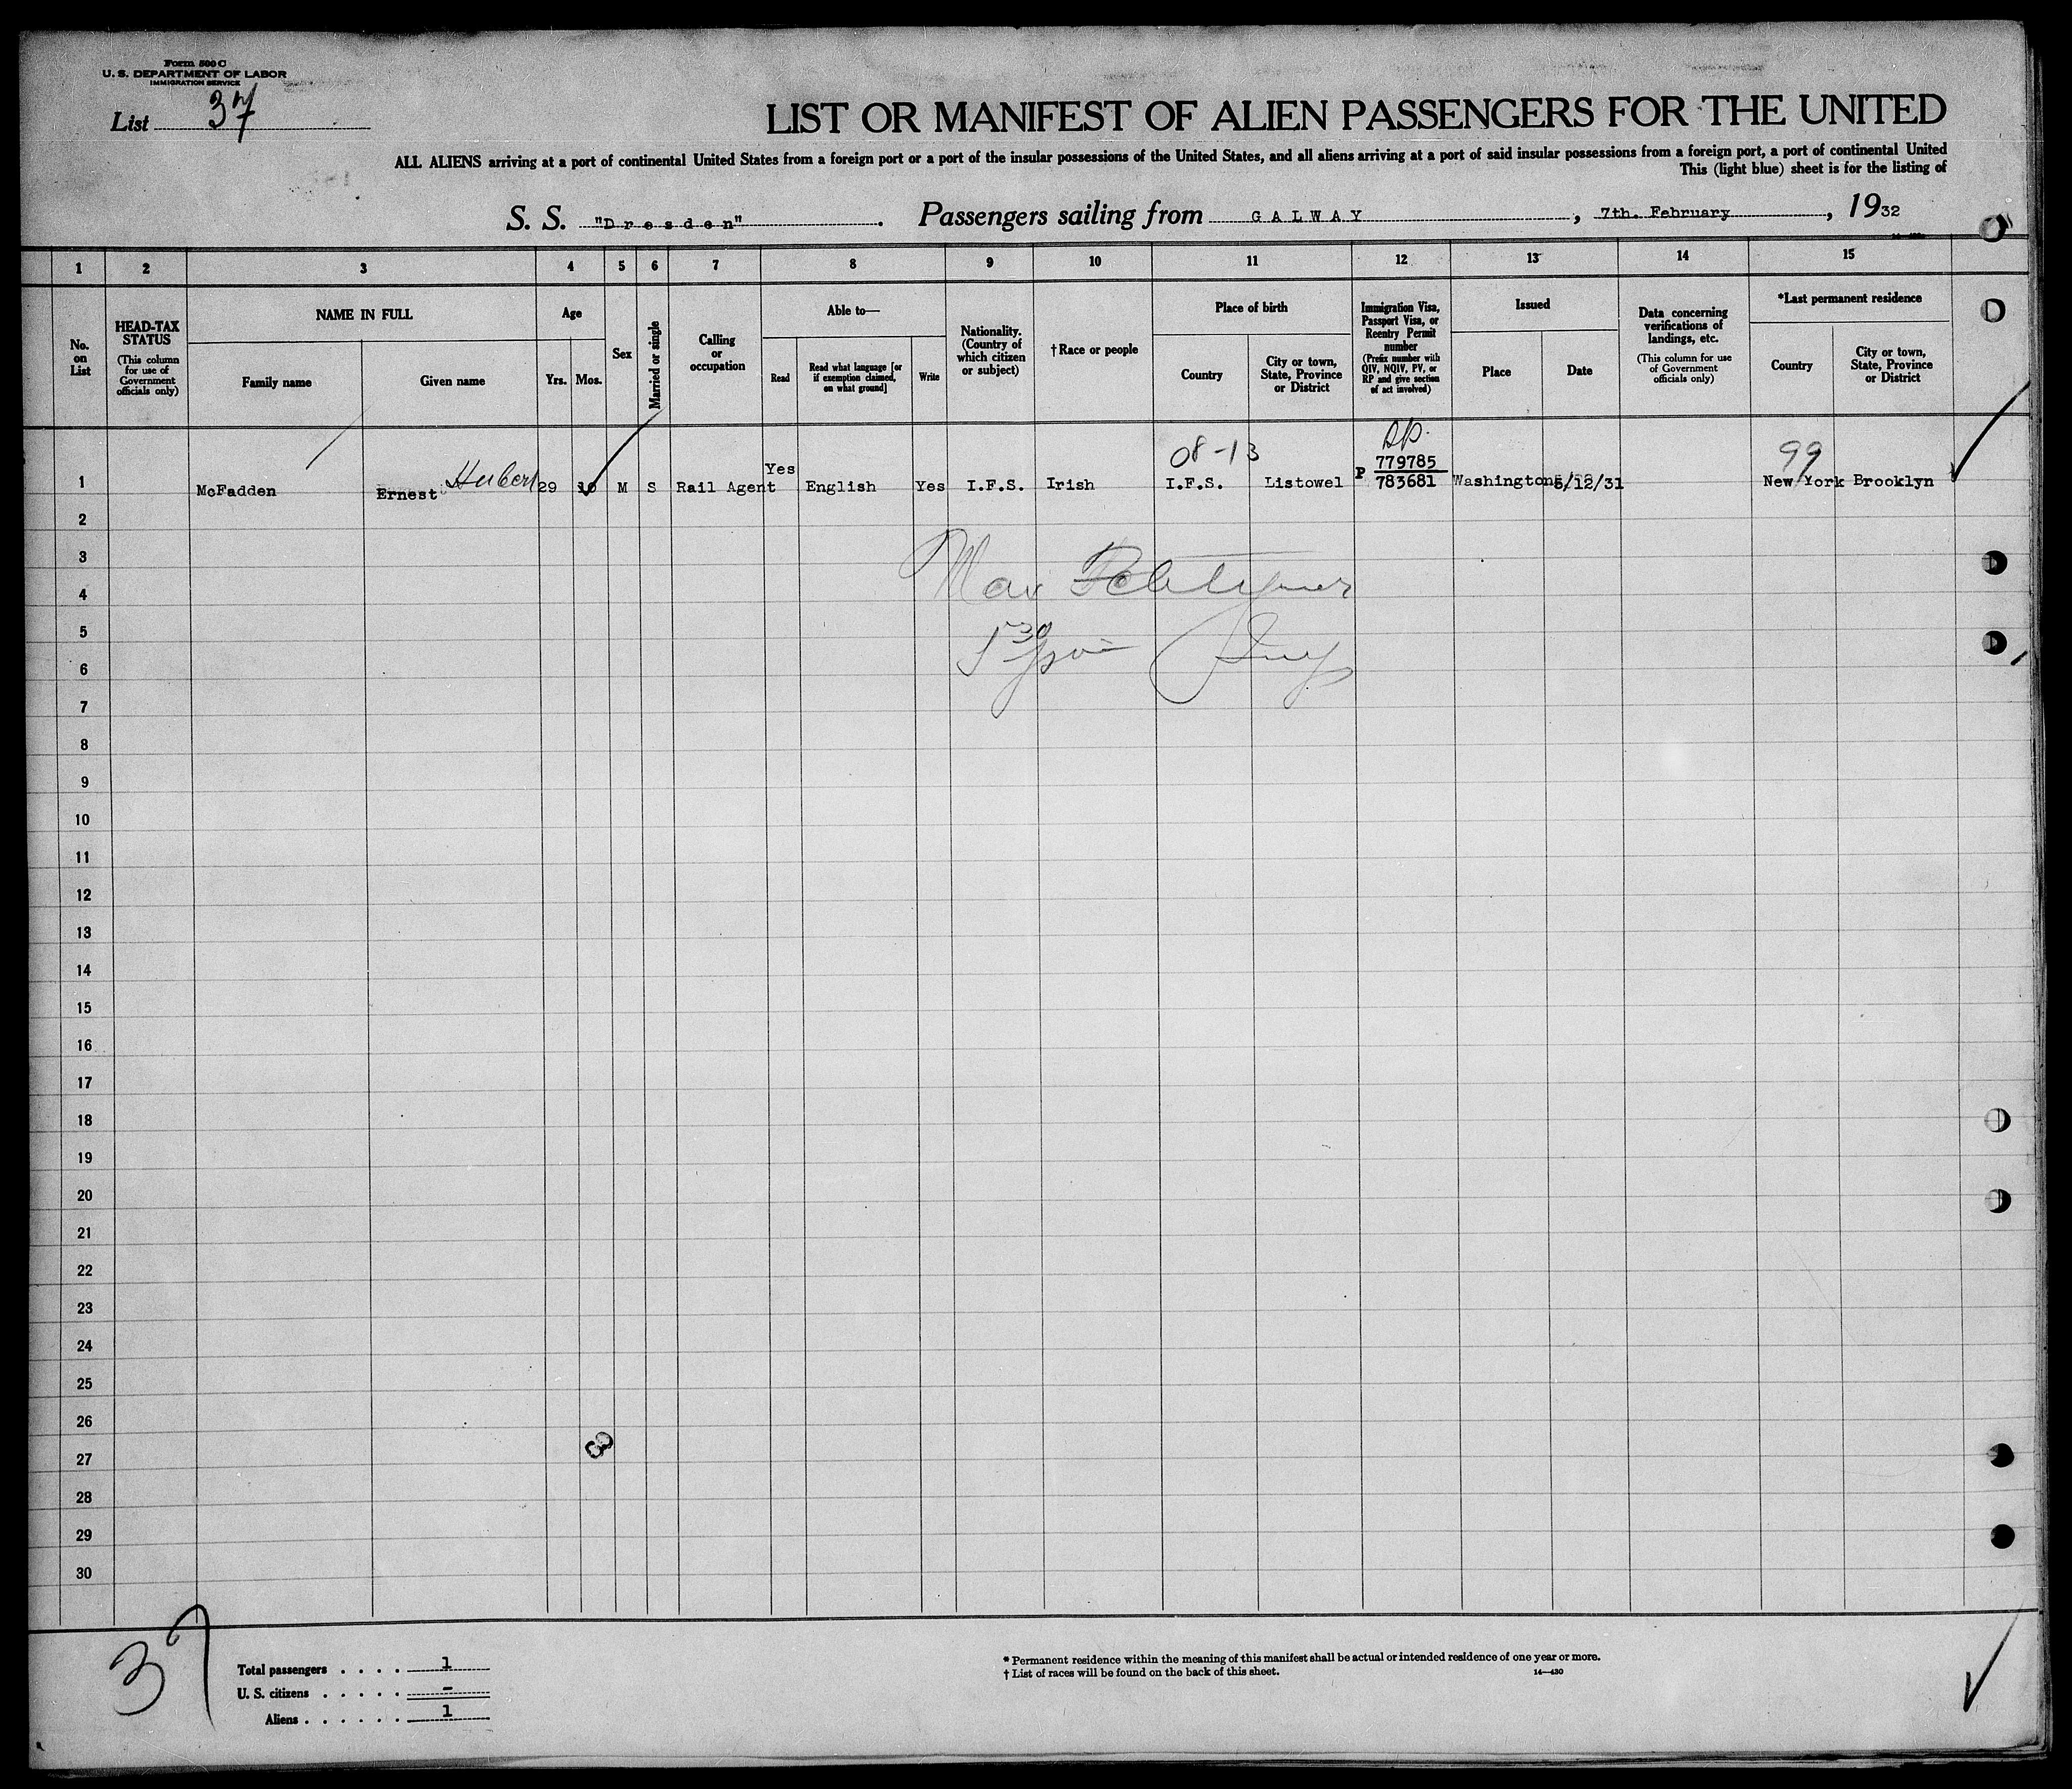 Form 500 C
U. S. DEPARTMENT OF LABOR
IMMIGRATION SERVICE
List 37
LIST OR MANIFEST OF ALIEN PASSENGERS FOR THE UNITED
ALL ALIENS arriving at a port of continental United States from a foreign port or a port of the insular possessions of the United States, and all aliens arriving at a port of said insular possessions from a foreign port, a port of continental United
This (light blue) sheet is for the listing of
S. S. "Dresden". Passengers sailing from GALWAY, 7th. February, 1932
1 2 3 4 5 6 7 8 9 10 11 12 13 14 15
No. on List
HEAD-TAX STATUS (This column for use of Government officials only)
NAME IN FULL
Family name
Given name
Age
Yrs.
Mos.
Sex
Married or single
Calling or occupation
Able to—
Read
Read what language [or if exemption claimed, on what ground]
Write
Nationality. (Country of which citizen or subject)
†Race or people
Place of birth
Country
City or town, State, Province or District
Immigration Visa, Passport Visa, or Reentry Permit number (Prefix number with QIV, NQIV, PV, or RP and give section of act involved)
Issued
Place
Date
Data concerning verifications of landings, etc. (This column for use of Government officials only)
*Last permanent residence
Country
City or town, State, Province or District
08-13
99
1 McFadden Ernest Hubert 29 10 M S Rail Agent Yes English Yes I.F.S. Irish I.F.S. Listowel P 779785 783681 Washington 5/12/31 New York Brooklyn
2
3
4
5
6
7
8
9
10
11
12
13
14
15
16
17
18
19
20
21
22
23
24
25
26
27
28
29
30
37
Total passengers . . . . 1
U. S. citizens . . . . . -
Aliens . . . . . . 1
* Permanent residence within the meaning of this manifest shall be actual or intended residence of one year or more.
† List of races will be found on the back of this sheet.
14—430